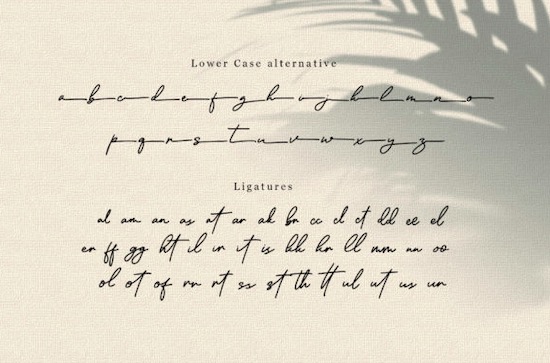 Lower Case alternative
a b c d e f g h i j k l m n o
p q r s t u v w x y z
Ligatures
al am an as at ar ak br cc cl ct dd ee el
er ff gg ht il in it is kk kr ll mm nn oo
ol ot of rr rt ss st th tt ul ut us un